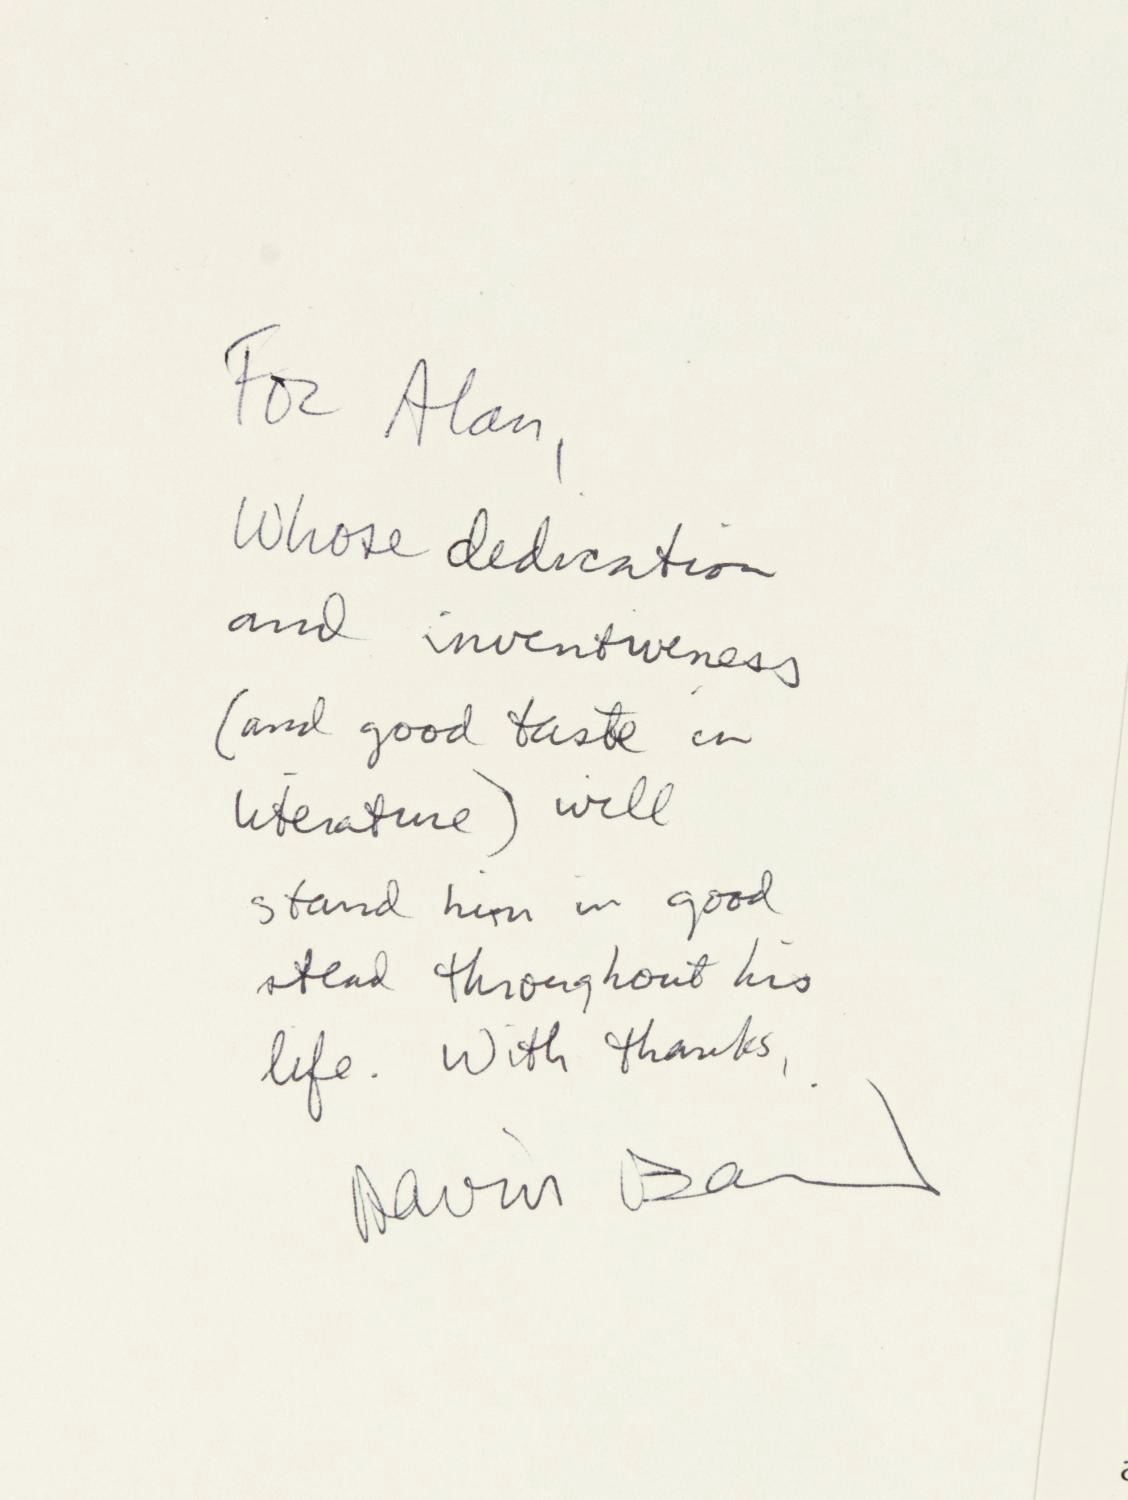 For Alan,
Whose dedication
and inventiveness
(and good taste in
literature) will
stand him in good
stead throughout his
life. With thanks,